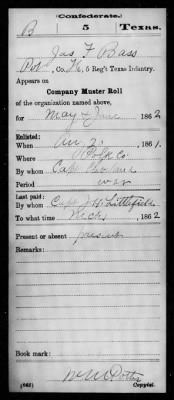 (Confederate.)
B 5 Texas.
Jas F Bass
Pvt, Co. K, 5 Reg't Texas Infantry.
Appears on
Company Muster Roll
of the organization named above,
for May & June 1862
Enlisted:
When 1861
Where Polk Co
By whom Capt
Period war
Last paid:
By whom Capt Littlefield
To what time 1862
Present or absent present
Remarks:
Book mark:
(642) Copyist.